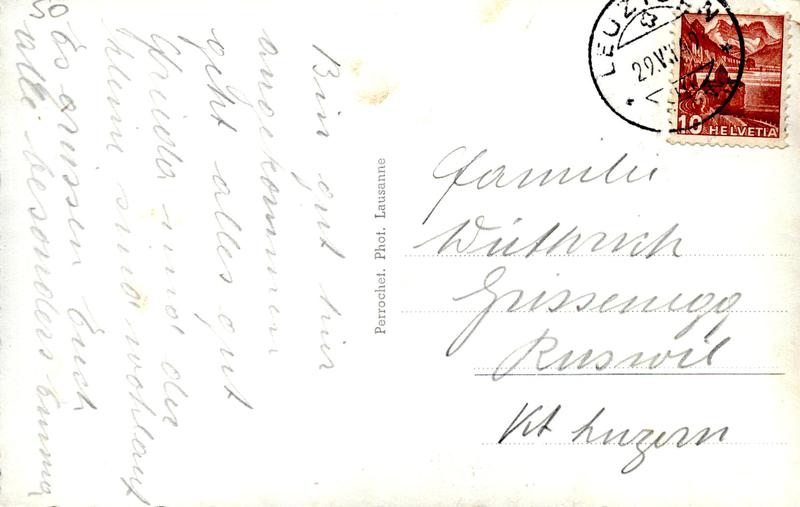 Bin gut hier
angekommen
geht alles gut
Frieda und der
kleine sind wohlauf
Es grüssen Euch
alle besonders Emma
Perrochet. Phot. Lausanne
LEUZIGEN
29.VII.42
10 HELVETIA
Familie
Wüthrich
Grissenegg
Ruswil
Kt Luzern